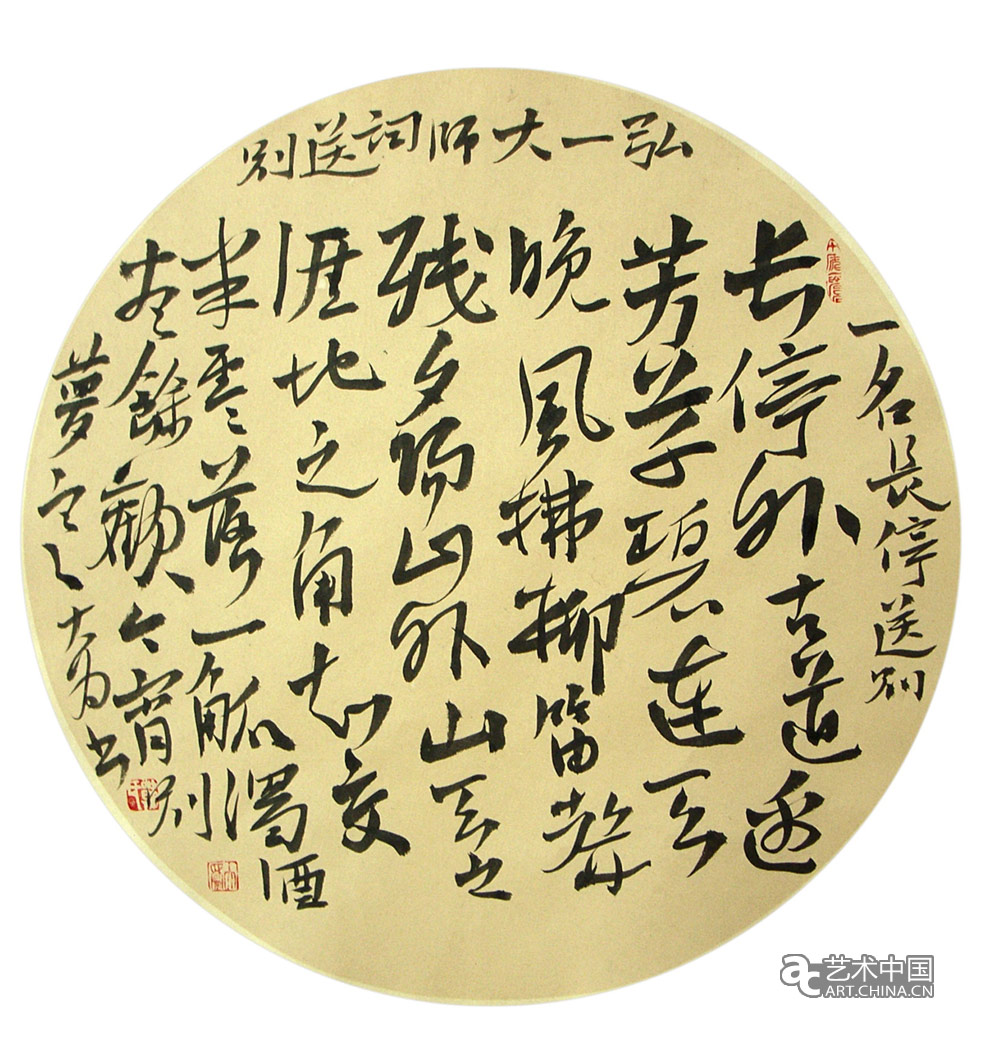 弘一大师词送别
一名長停送别
长停外古道边
芳草碧連天
晚風拂柳笛聲
残夕陽山外山天之
涯地之角知交
半零〻落一觚濁酒
尽餘歡今宵别
夢寒大为书
艺术中国
ART.CHINA.CN